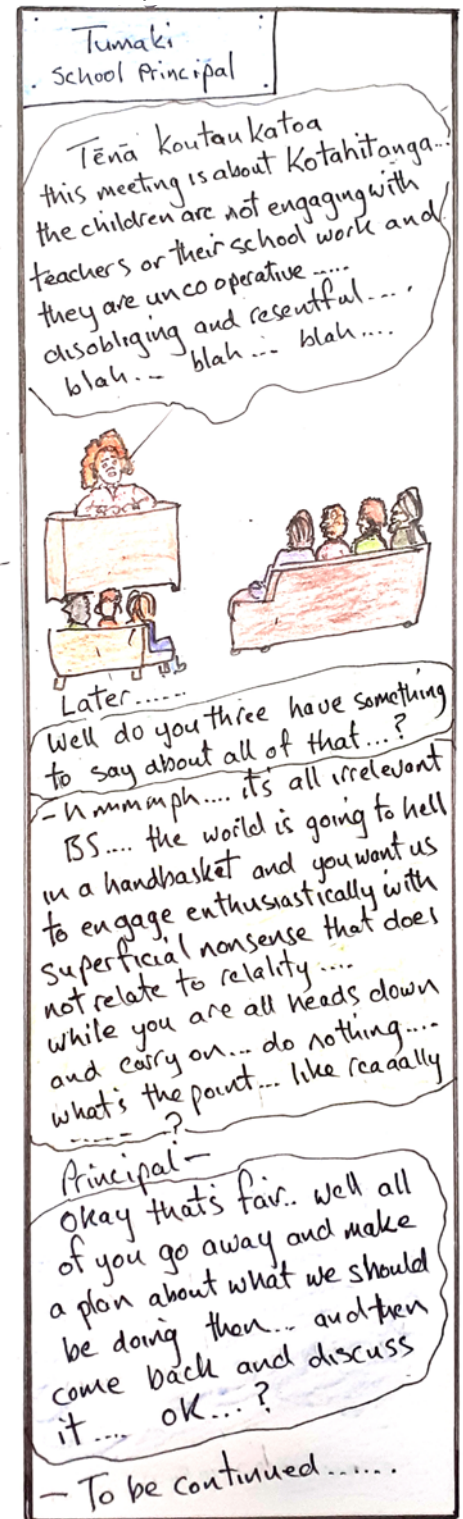 Tumaki
School Principal
Tēnā koutou katoa
this meeting is about Kotahitanga...
the children are not engaging with
teachers or their school work and
they are uncooperative .....
disobliging and resentful....
blah... blah... blah....
Later......
Well do you three have something
to say about all of that...?
- hmmmmph.... it's all irrelevant
BS.... the world is going to hell
in a handbasket and you want us
to engage enthusiastically with
superficial nonsense that does
not relate to relality....
while you are all heads down
and carry on... do nothing....
what's the point... like reaaally
......?
Principal -
Okay that's fair.. well all
of you go away and make
a plan about what we should
be doing then... and then
come back and discuss
it.... OK...?
- To be continued......